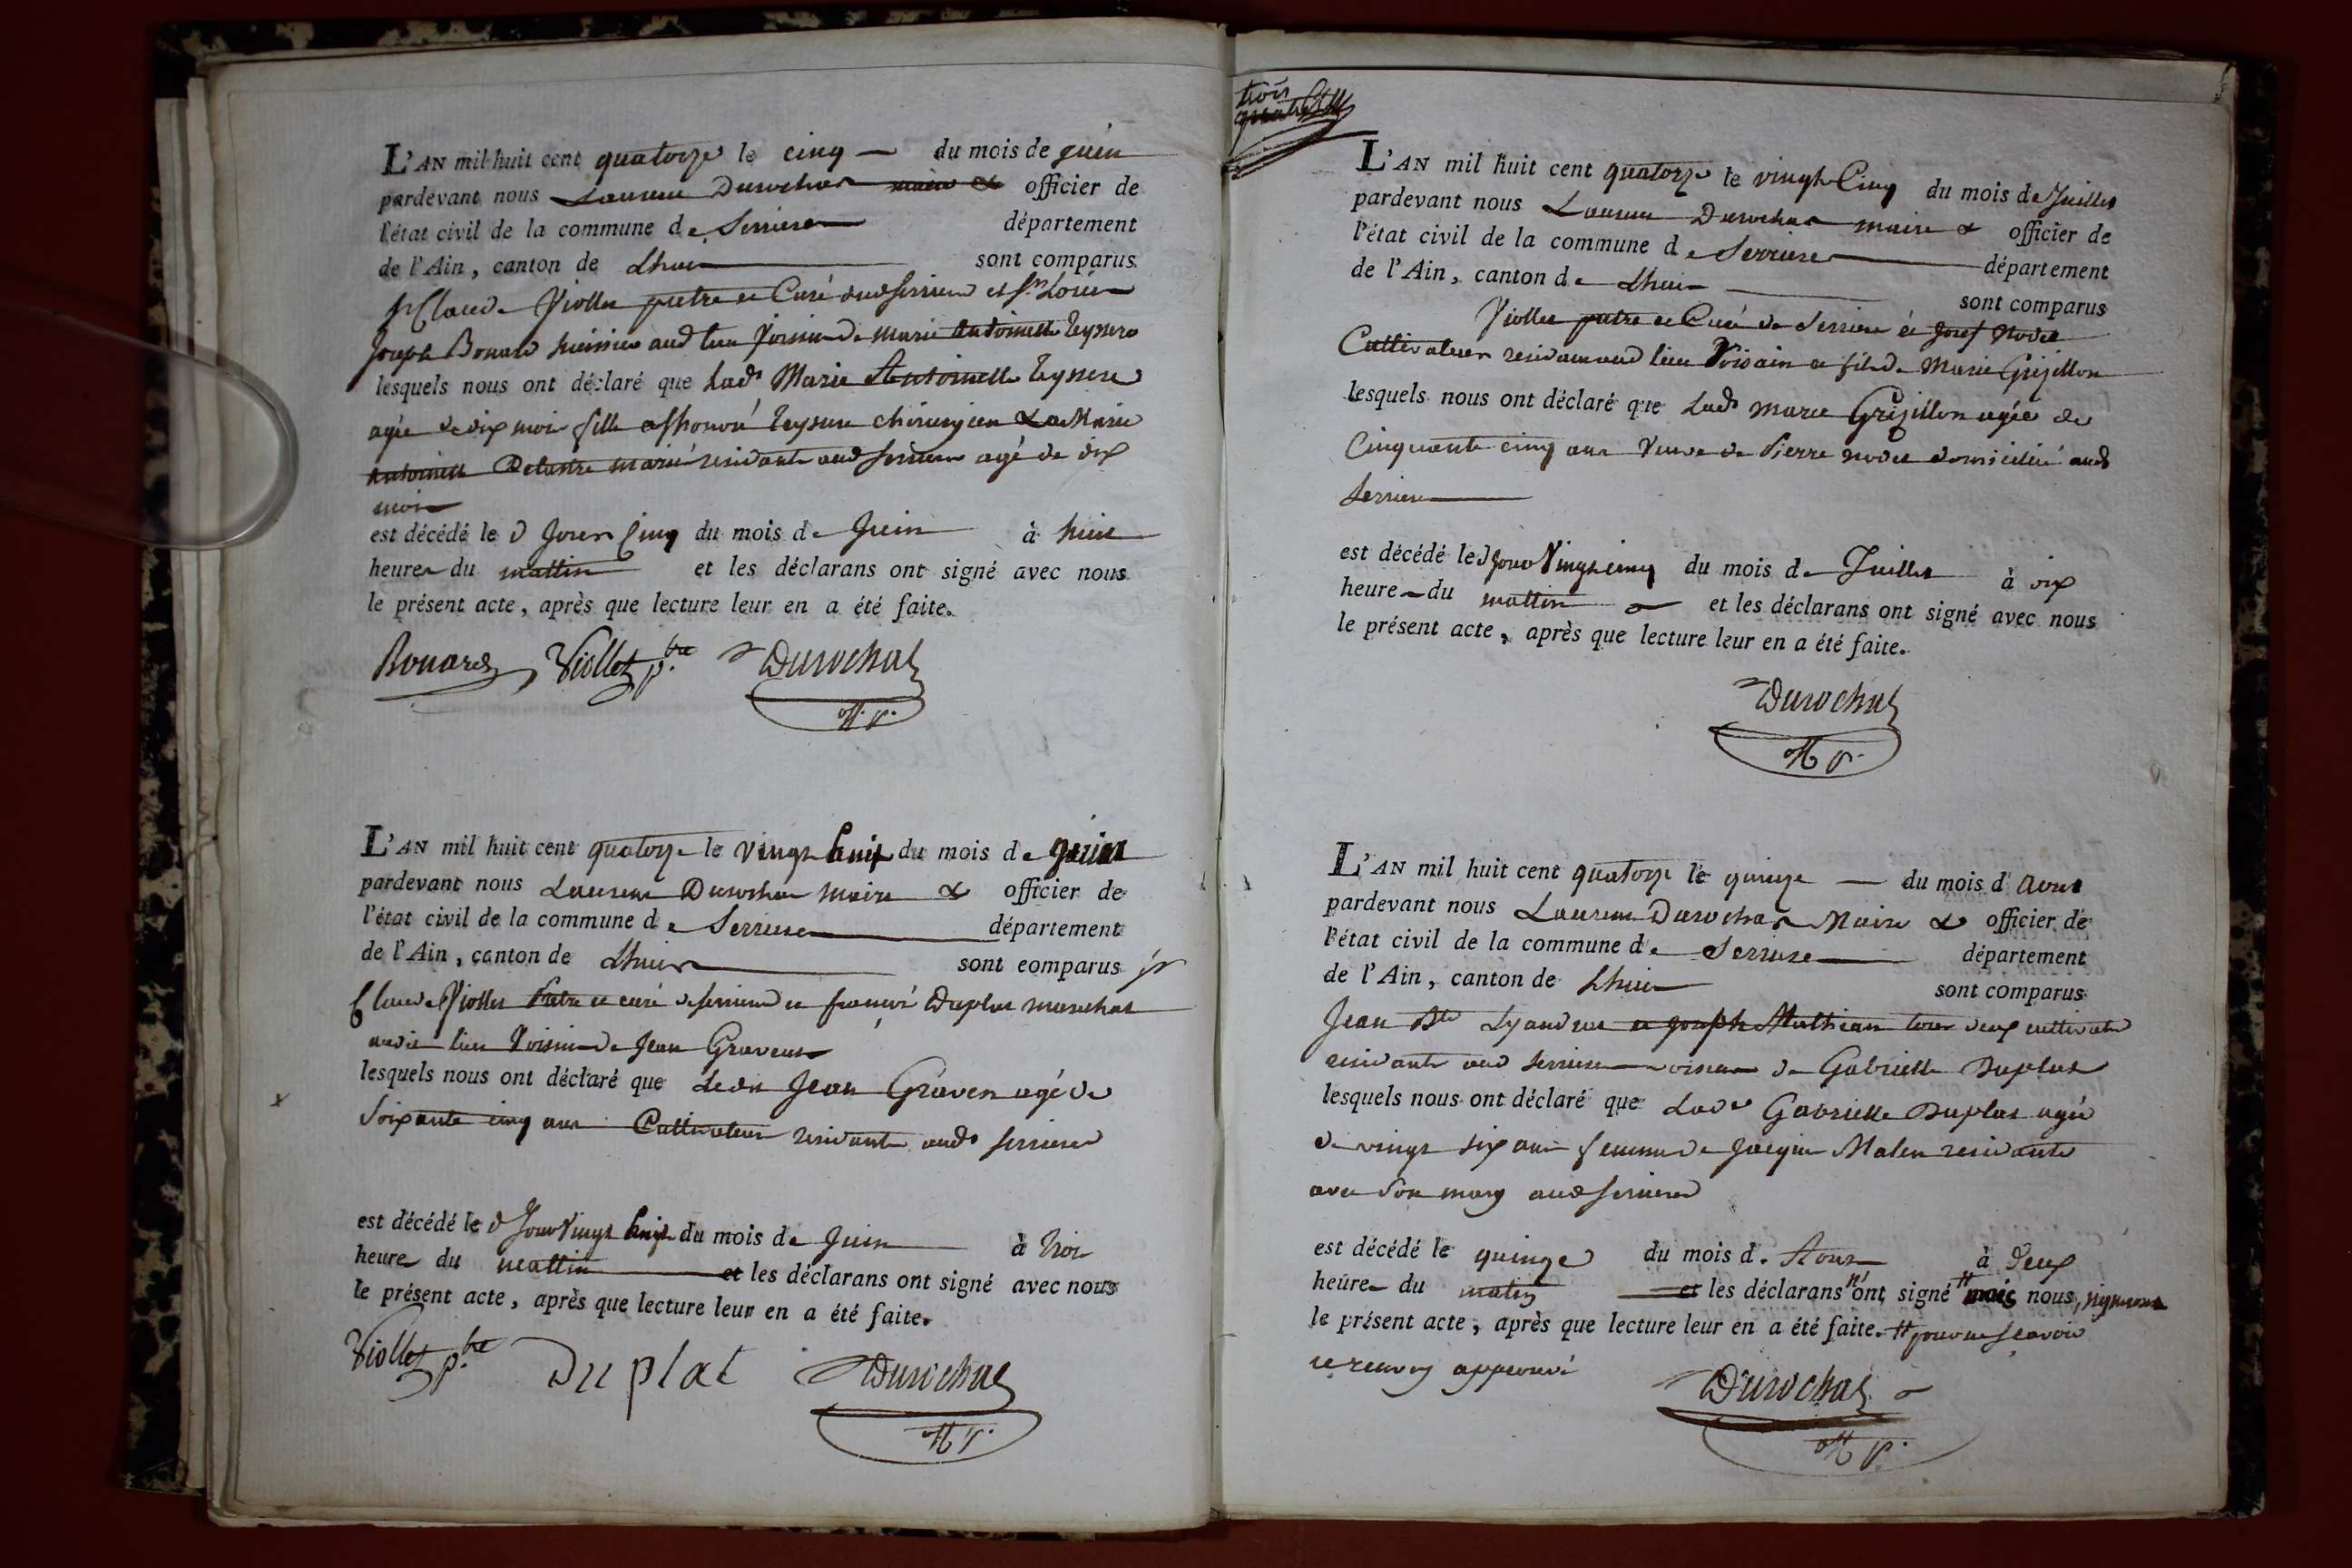 L'AN mil huit cent quatorze le cinq du mois de juin
pardevant nous Laurent Durochat maire & officier de
l'état civil de la commune de Serriere département
de l'Ain, canton de Lhuis sont comparus
Sr Claude Viollet pretre et Curé dud Serriere et Sr
Joseph Bonard huissier aud lieu voisin de Marie Antoinette Teyssere
lesquels nous ont déclaré que lad. Marie Antoinette Teyssere
agée de dix mois fille chirurgien Marie
Antoinette mariés residants aud Serriere agé de dix
mois
est décédé le d Jour Cinq du mois de Juin à huit
heures du mattin et les déclarans ont signé avec nous
le présent acte, après que lecture leur en a été faite.
Bonard Viollet p.tre Durochat
M. P.
L'AN mil huit cent quatorze le vingt huit du mois de juin
pardevant nous Laurent Durochat maire & officier de
l'état civil de la commune de Serriere département
de l'Ain, canton de Lhuis sont comparus sr
Claude Viollet Pretre et curé de Serriere et Duplat marechal
audit lieu Voisin de Jean Graven
lesquels nous ont déclaré que Ledit Jean Graven agé de
Soixante cinq ans Cultivateur residant aud. Serriere
est décédé le d Jour Vingt huit du mois de Juin à trois
heure du mattin et les déclarans ont signé avec nous
le présent acte, après que lecture leur en a été faite.
Viollet p.tre Duplat Durochat
M P.
trois
L'AN mil huit cent quatorze le vingt Cinq du mois de Juillet
pardevant nous Laurent Durochat maire & officier de
l'état civil de la commune de Serriere département
de l'Ain, canton de Lhuis sont comparus
Viollet pretre et Curé de Serriere et Josef Nodet
Cultivateur residant aud lieu Voisain et fils de Marie Grézillon
lesquels nous ont déclaré que Lad. Marie Grézillon agée de
Cinquante cinq ans Veuve de Pierre Nodet domiciliée aud
Serriere
est décédé le d Jour Vingt cinq du mois de Juillet à dix
heure du mattin et les déclarans ont signé avec nous
le présent acte, après que lecture leur en a été faite.
Durochat
M P.
L'AN mil huit cent quatorze le quinze du mois d'Aout
pardevant nous Laurent Durochat Maire & officier de
l'état civil de la commune de Serriere département
de l'Ain, canton de Lhuis sont comparus
Jean Bte et joseph Mathian tous deux cultivateurs
residants aud Serriere voisins de Gabrielle Duplat
lesquels nous ont déclaré que Lad. Gabrielle Duplat agée
de vingt six ans femme de Jacque residante
avec son mary aud Serriere
est décédé le quinze du mois d'Aout à deux
heure du matin et les déclarans n'ont signé # mais nous, signerons
le présent acte, après que lecture leur en a été faite. # pour ne scavoir
ce renvoy approuvé
Durochat
M P.